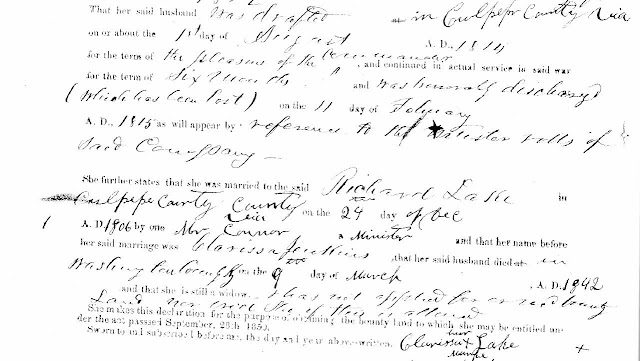 That her said husband was drafted in Culpeper County Via
on or about the 1st day of August A. D. 1814
for the term of the pleasure of the Commander, and continued in actual service in said war
for the term of Six Months and was honorably discharged
(which has been lost) on the 11 day of February
A. D., 1815 as will appear by reference to the Muster rolls of
said Company —
She further states that she was married to the said Richard Lake in
Culpepe County County Via on the 24 day of Dec
A. D. 1806 by one Mr Connor a Minister and that her name before
her said marriage was Clarissa Jenkins that her said husband died at in
Washington County on the 9 day of March, A. D. 1842
and that she is still a widow. has not applied for or
Land nor
She makes this declaration for the purpose of obtaining the bounty land to which she may be entitled un-
der the act passed September, 28th 1850.
Sworn to and subscribed before me, the day and year above written. Clarissa + Lake
her
mark
+